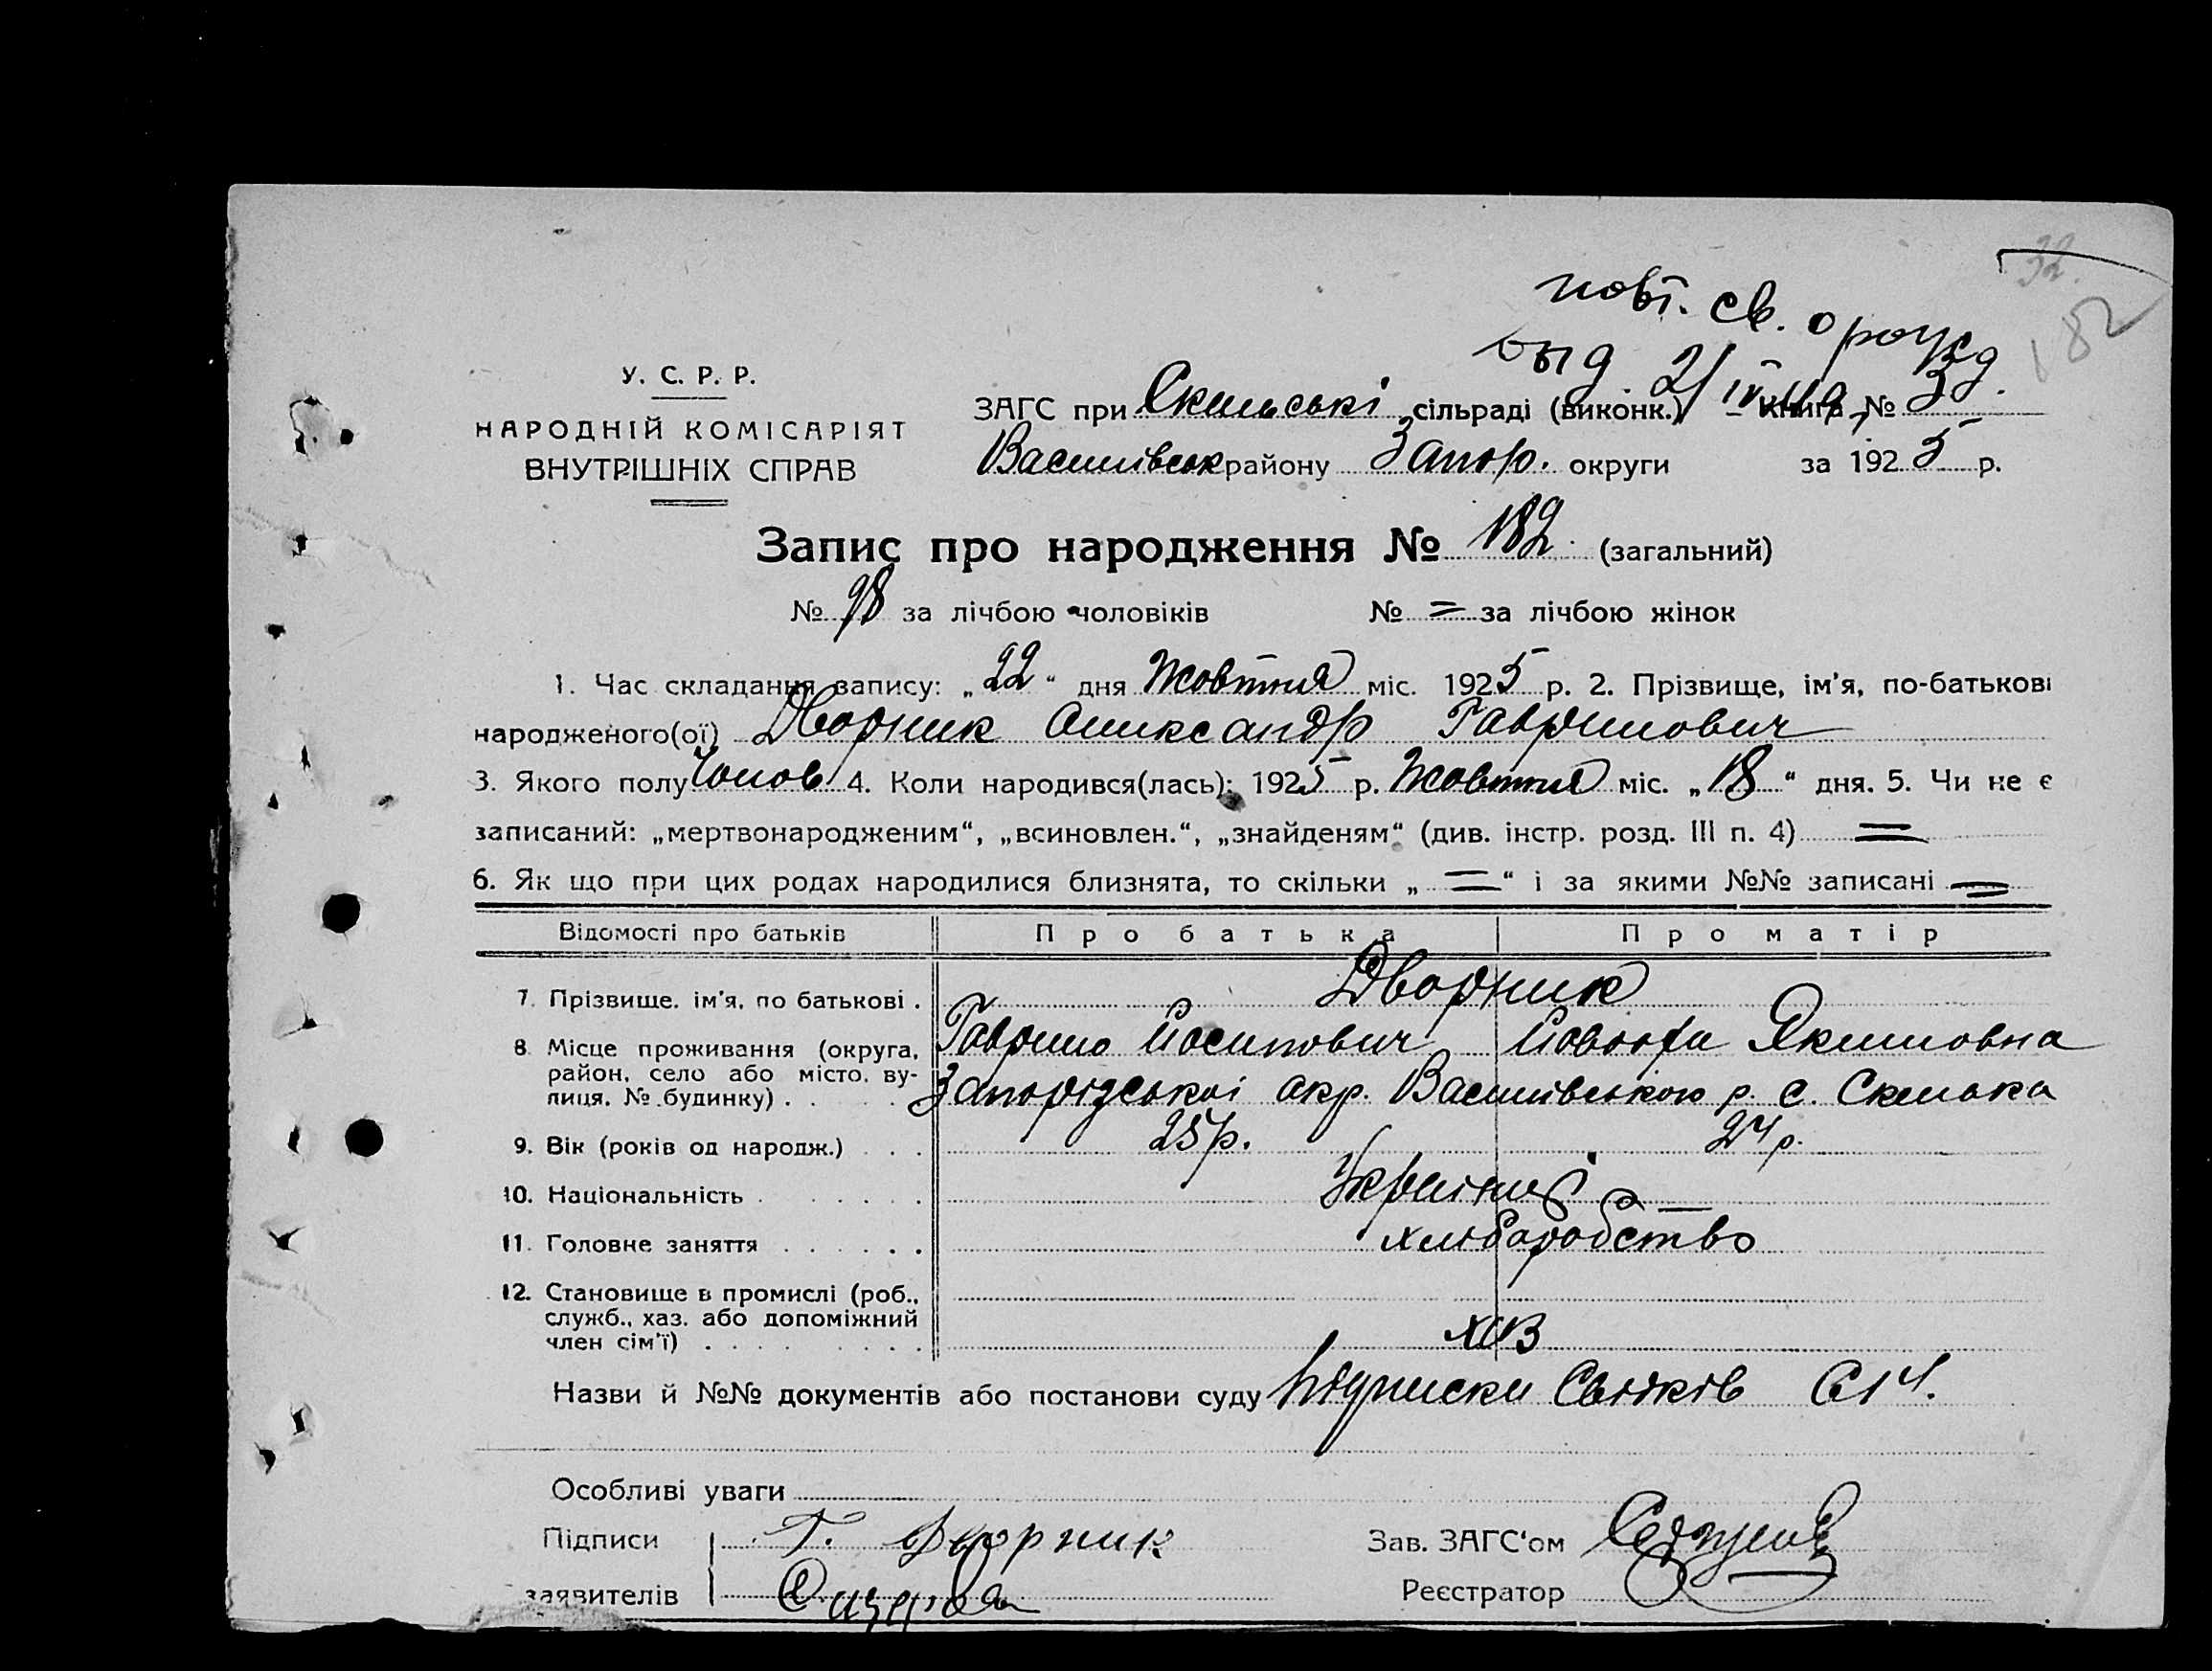 32.
182
повт. св. о рожд
выд. 21/IV 49
У. С. Р. Р.
НАРОДНІЙ КОМІСАРІЯТ
ВНУТРІШНІХ СПРАВ
ЗАГС при Скельські сільраді (виконк.) Книга № 3
Василівськ району Запор. округи за 1925 р.
Запис про народження № 182 (загальний)
№ 98 за лічбою чоловіків № = за лічбою жінок
1. Час складання запису: „22“ дня Жовтня міс. 1925 р. 2. Прізвище, ім'я, по-батькові
народженого(ої) Дворник Олександр Гаврилович
3. Якого полу Чолов 4. Коли народився(лась): 1925 р. Жовтня міс. „18“ дня. 5. Чи не є
записаний: „мертвонародженим“, „всиновлен.“, „знайденям“ (див. інстр. розд. III п. 4) =
6. Як що при цих родах народилися близнята, то скільки „=“ і за якими №№ записані =
Відомості про батьків Про батька Про матір
7. Прізвище, ім'я, по батькові . Дворник
Гаврило Йосипович Йовдоха Якимовна
8. Місце проживання (округа, район, село або місто, ву-
лиця, № будинку) . . Запорізської окр. Василівського р. с. Скелька
9. Вік (років од народж.) . . . 25 р. 24 р.
10. Національність . . . . . Україн
11. Головне заняття . . . . . . хліборобство
12. Становище в промислі (роб.,
служб., хаз. або допоміжний
член сім'ї) . . . . . . . .
Назви й №№ документів або постанови суду Підписки Свідків
Особливі уваги
Підписи Г. Дворник Зав. ЗАГС'ом
заявителів Реєстратор